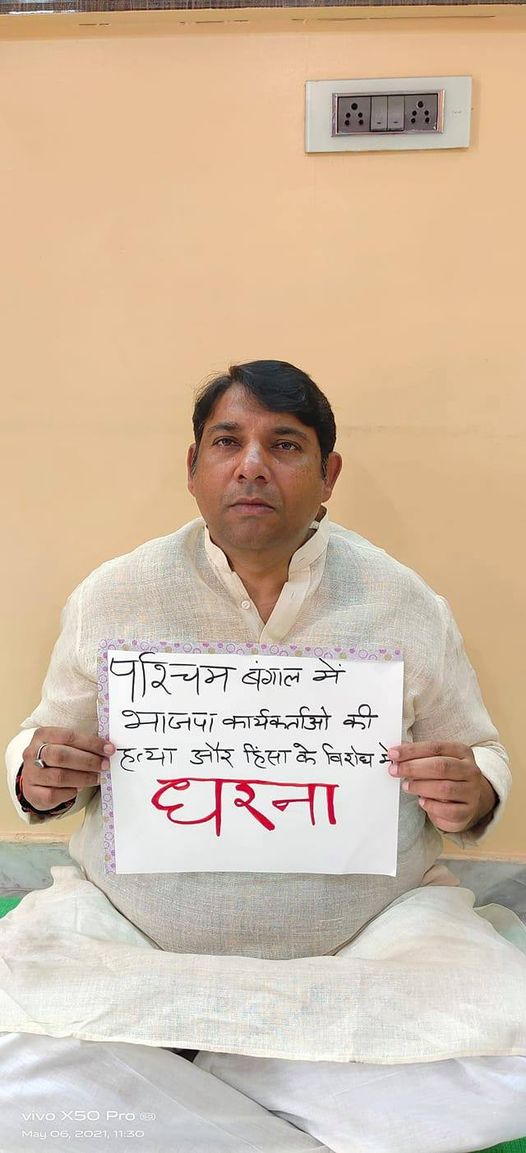 पश्चिम बंगाल में
भाजपा कार्यकर्ताओ की
हत्या और हिंसा के विरोध में
धरना
vivo X50 Pro 5G
May 06, 2021, 11:30